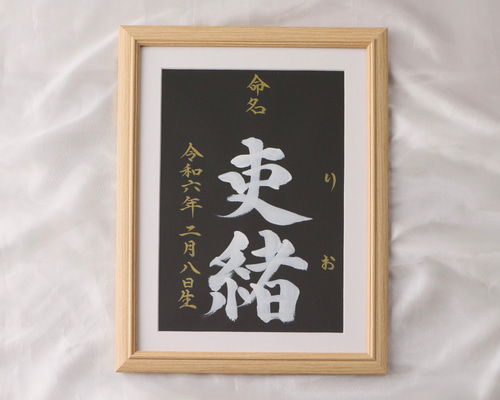 命名
りお
吏緒
令和六年二月八日生